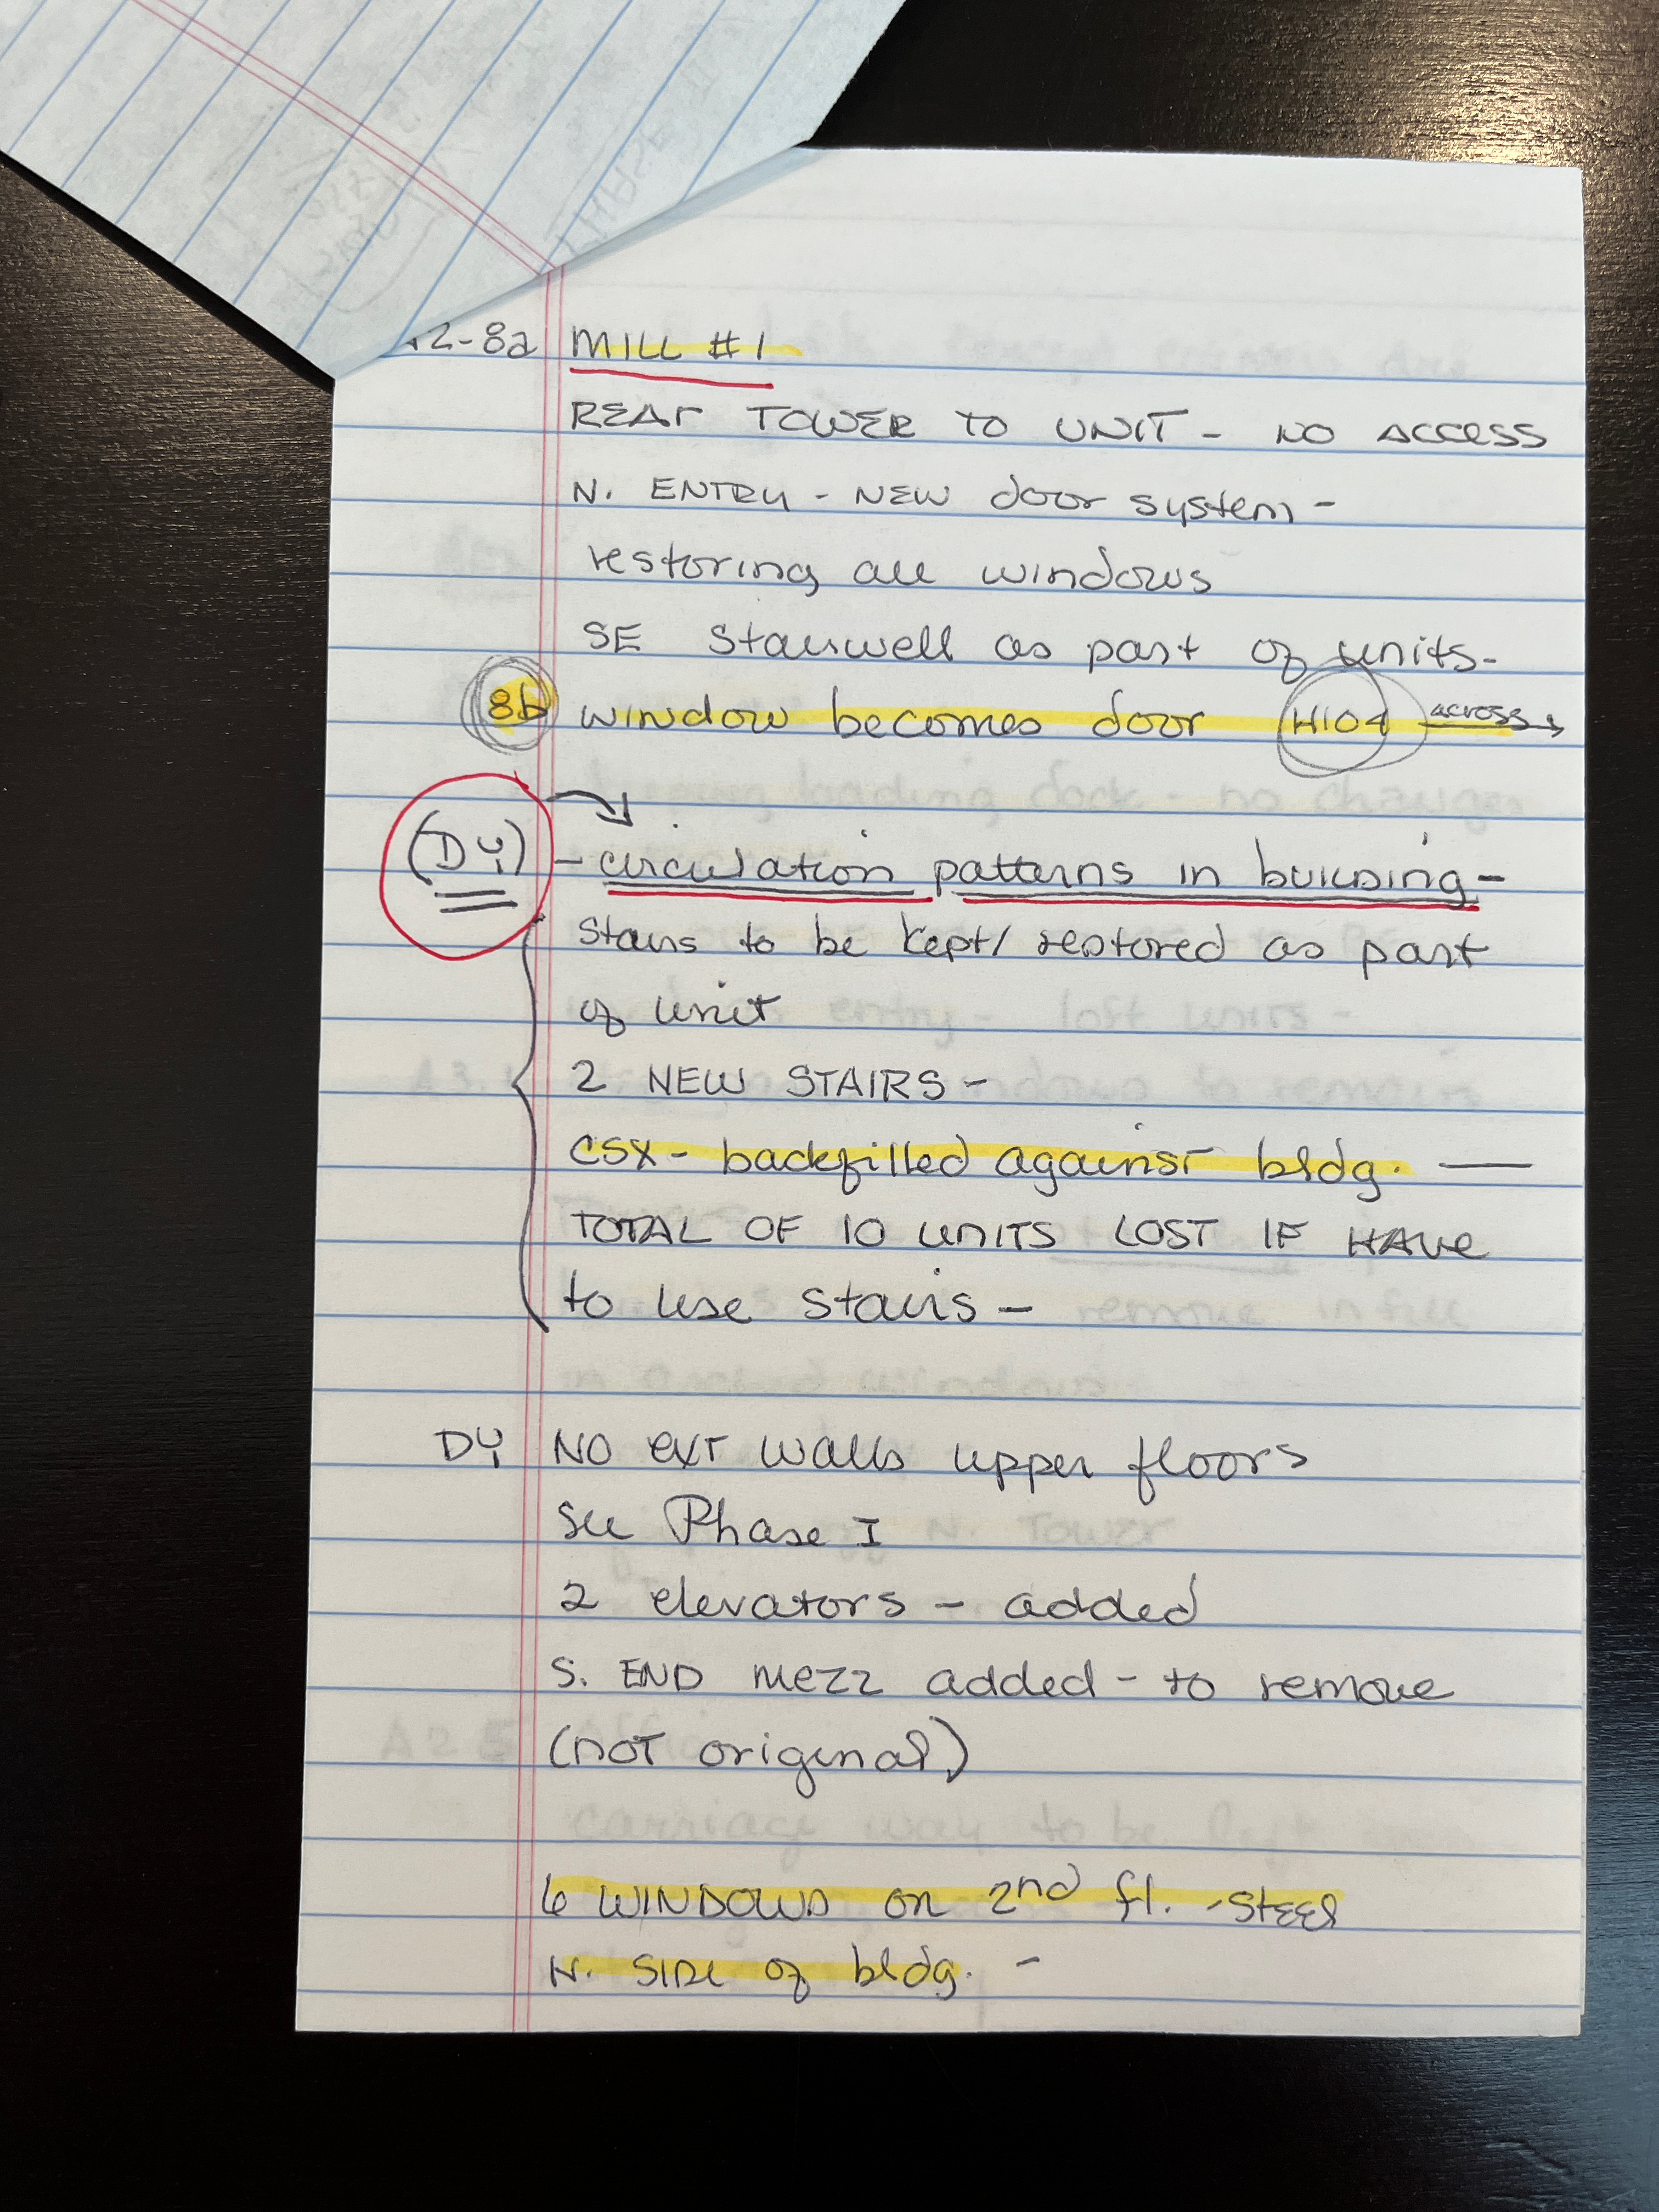 2-8a MILL #1
REAR TOWER TO UNIT - NO ACCESS
N. ENTRY - NEW door system -
restoring all windows
SE Stairwell as part of units -
8b window becomes door H104 across →
(DY) - circulation patterns in building -
Stairs to be kept/ restored as part
of unit
2 NEW STAIRS -
CSX - backfilled against bldg. —
TOTAL OF 10 UNITS LOST IF HAVE
to use stairs -
DY NO EXT walls upper floors
See Phase I
2 elevators - added
S. END mezz added - to remove
(NOT original)
6 WINDOWS on 2nd fl. - STEEL
N. SIDE of bldg. -